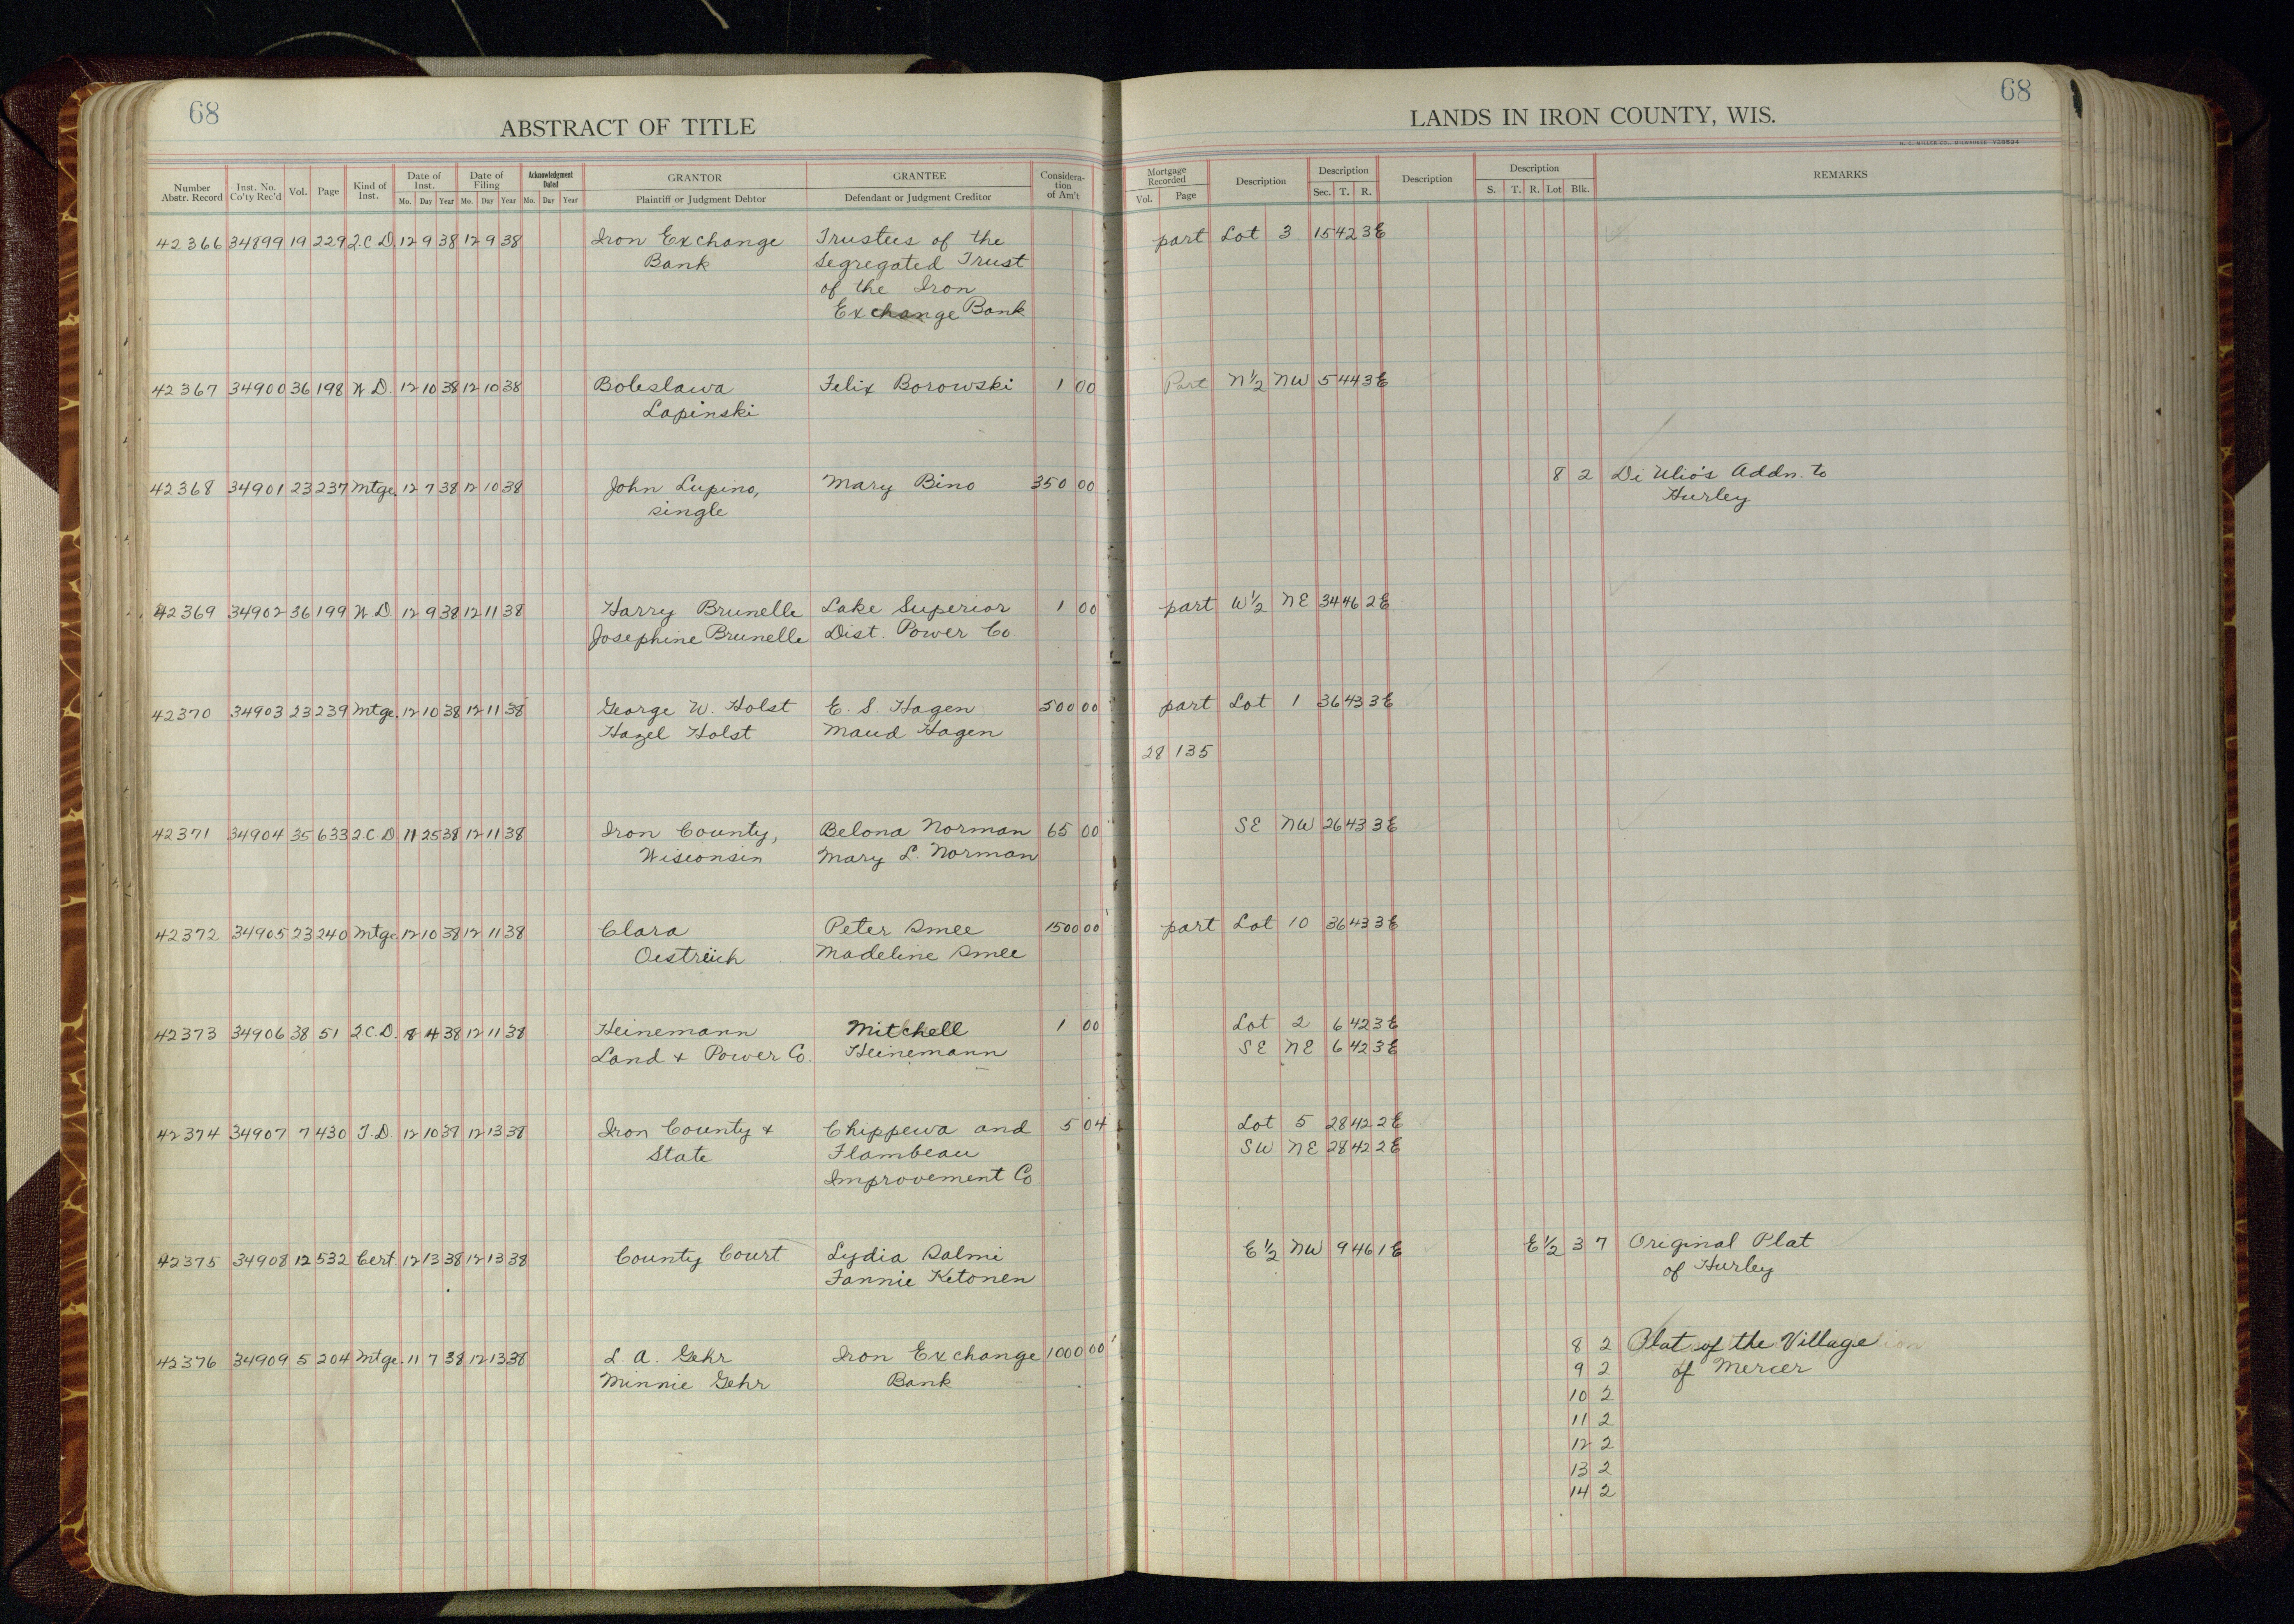 68
ABSTRACT OF TITLE
Number Abstr. Record | Inst. No. Co'ty Rec'd | Vol. | Page | Kind of Inst. | Date of Inst. Mo. Day Year | Date of Filing Mo. Day Year | Acknowledgment Dated Mo. Day Year | GRANTOR Plaintiff or Judgment Debtor | GRANTEE Defendant or Judgment Creditor | Consideration of Am't
68
LANDS IN IRON COUNTY, WIS.
Mortgage Recorded Vol. Page | Description | Description Sec. T. R. | Description | Description S. T. R. Lot Blk. | REMARKS
42366 34899 19 229 2.C.D. 12 9 38 12 9 38 Iron Exchange Trustees of the part Lot 3 15 42 3E
Bank Segregated Trust
of the Iron
Exchange Bank
42367 34900 36 198 W.D. 12 10 38 12 10 38 Boleslawa Felix Borowski 1 00 Part N½ NW 5 44 3E
Lapinski
42368 34901 23 237 Mtge. 12 7 38 12 10 38 John Lupino, Mary Bino 350 00 8 2 Di Ulio's Addn. to
single Hurley
42369 34902 36 199 W.D. 12 9 38 12 11 38 Harry Brunelle Lake Superior 1 00 part W½ NE 34 46 2E
Josephine Brunelle Dist. Power Co.
42370 34903 23 239 Mtge. 12 10 38 12 11 38 George W. Holst E. S. Hagen 500 00 part Lot 1 36 43 3E
Hazel Holst Maud Hagen
28 135
42371 34904 35 633 2.C.D. 11 25 38 12 11 38 Iron County, Belona Norman 65 00 SE NW 26 43 3E
Wisconsin Mary L. Norman
42372 34905 23 240 Mtge 12 10 38 12 11 38 Clara Peter Smee 1500 00 part Lot 10 36 43 3E
Oestreich Madeline Smee
42373 34906 38 51 2.C.D. 8 4 38 12 11 38 Heinemann Mitchell 1 00 Lot 2 6 42 3E
Land & Power Co. Heinemann SE NE 6 42 3E
42374 34907 7 430 T.D. 12 10 38 12 13 38 Iron County & Chippewa and 5 04 Lot 5 28 42 2E
State Flambeau SW NE 28 42 2E
Improvement Co
42375 34908 12 532 Cert. 12 13 38 12 13 38 County Court Lydia Salmi E½ NW 9 46 1E E½ 3 7 Original Plat
Fannie Ketonen of Hurley
42376 34909 5 204 Mtge. 11 7 38 12 13 38 L. A. Gehr Iron Exchange 1000 00 8 2 Plat of the Village
Minnie Gehr Bank 9 2 of Mercer
10 2
11 2
12 2
13 2
14 2